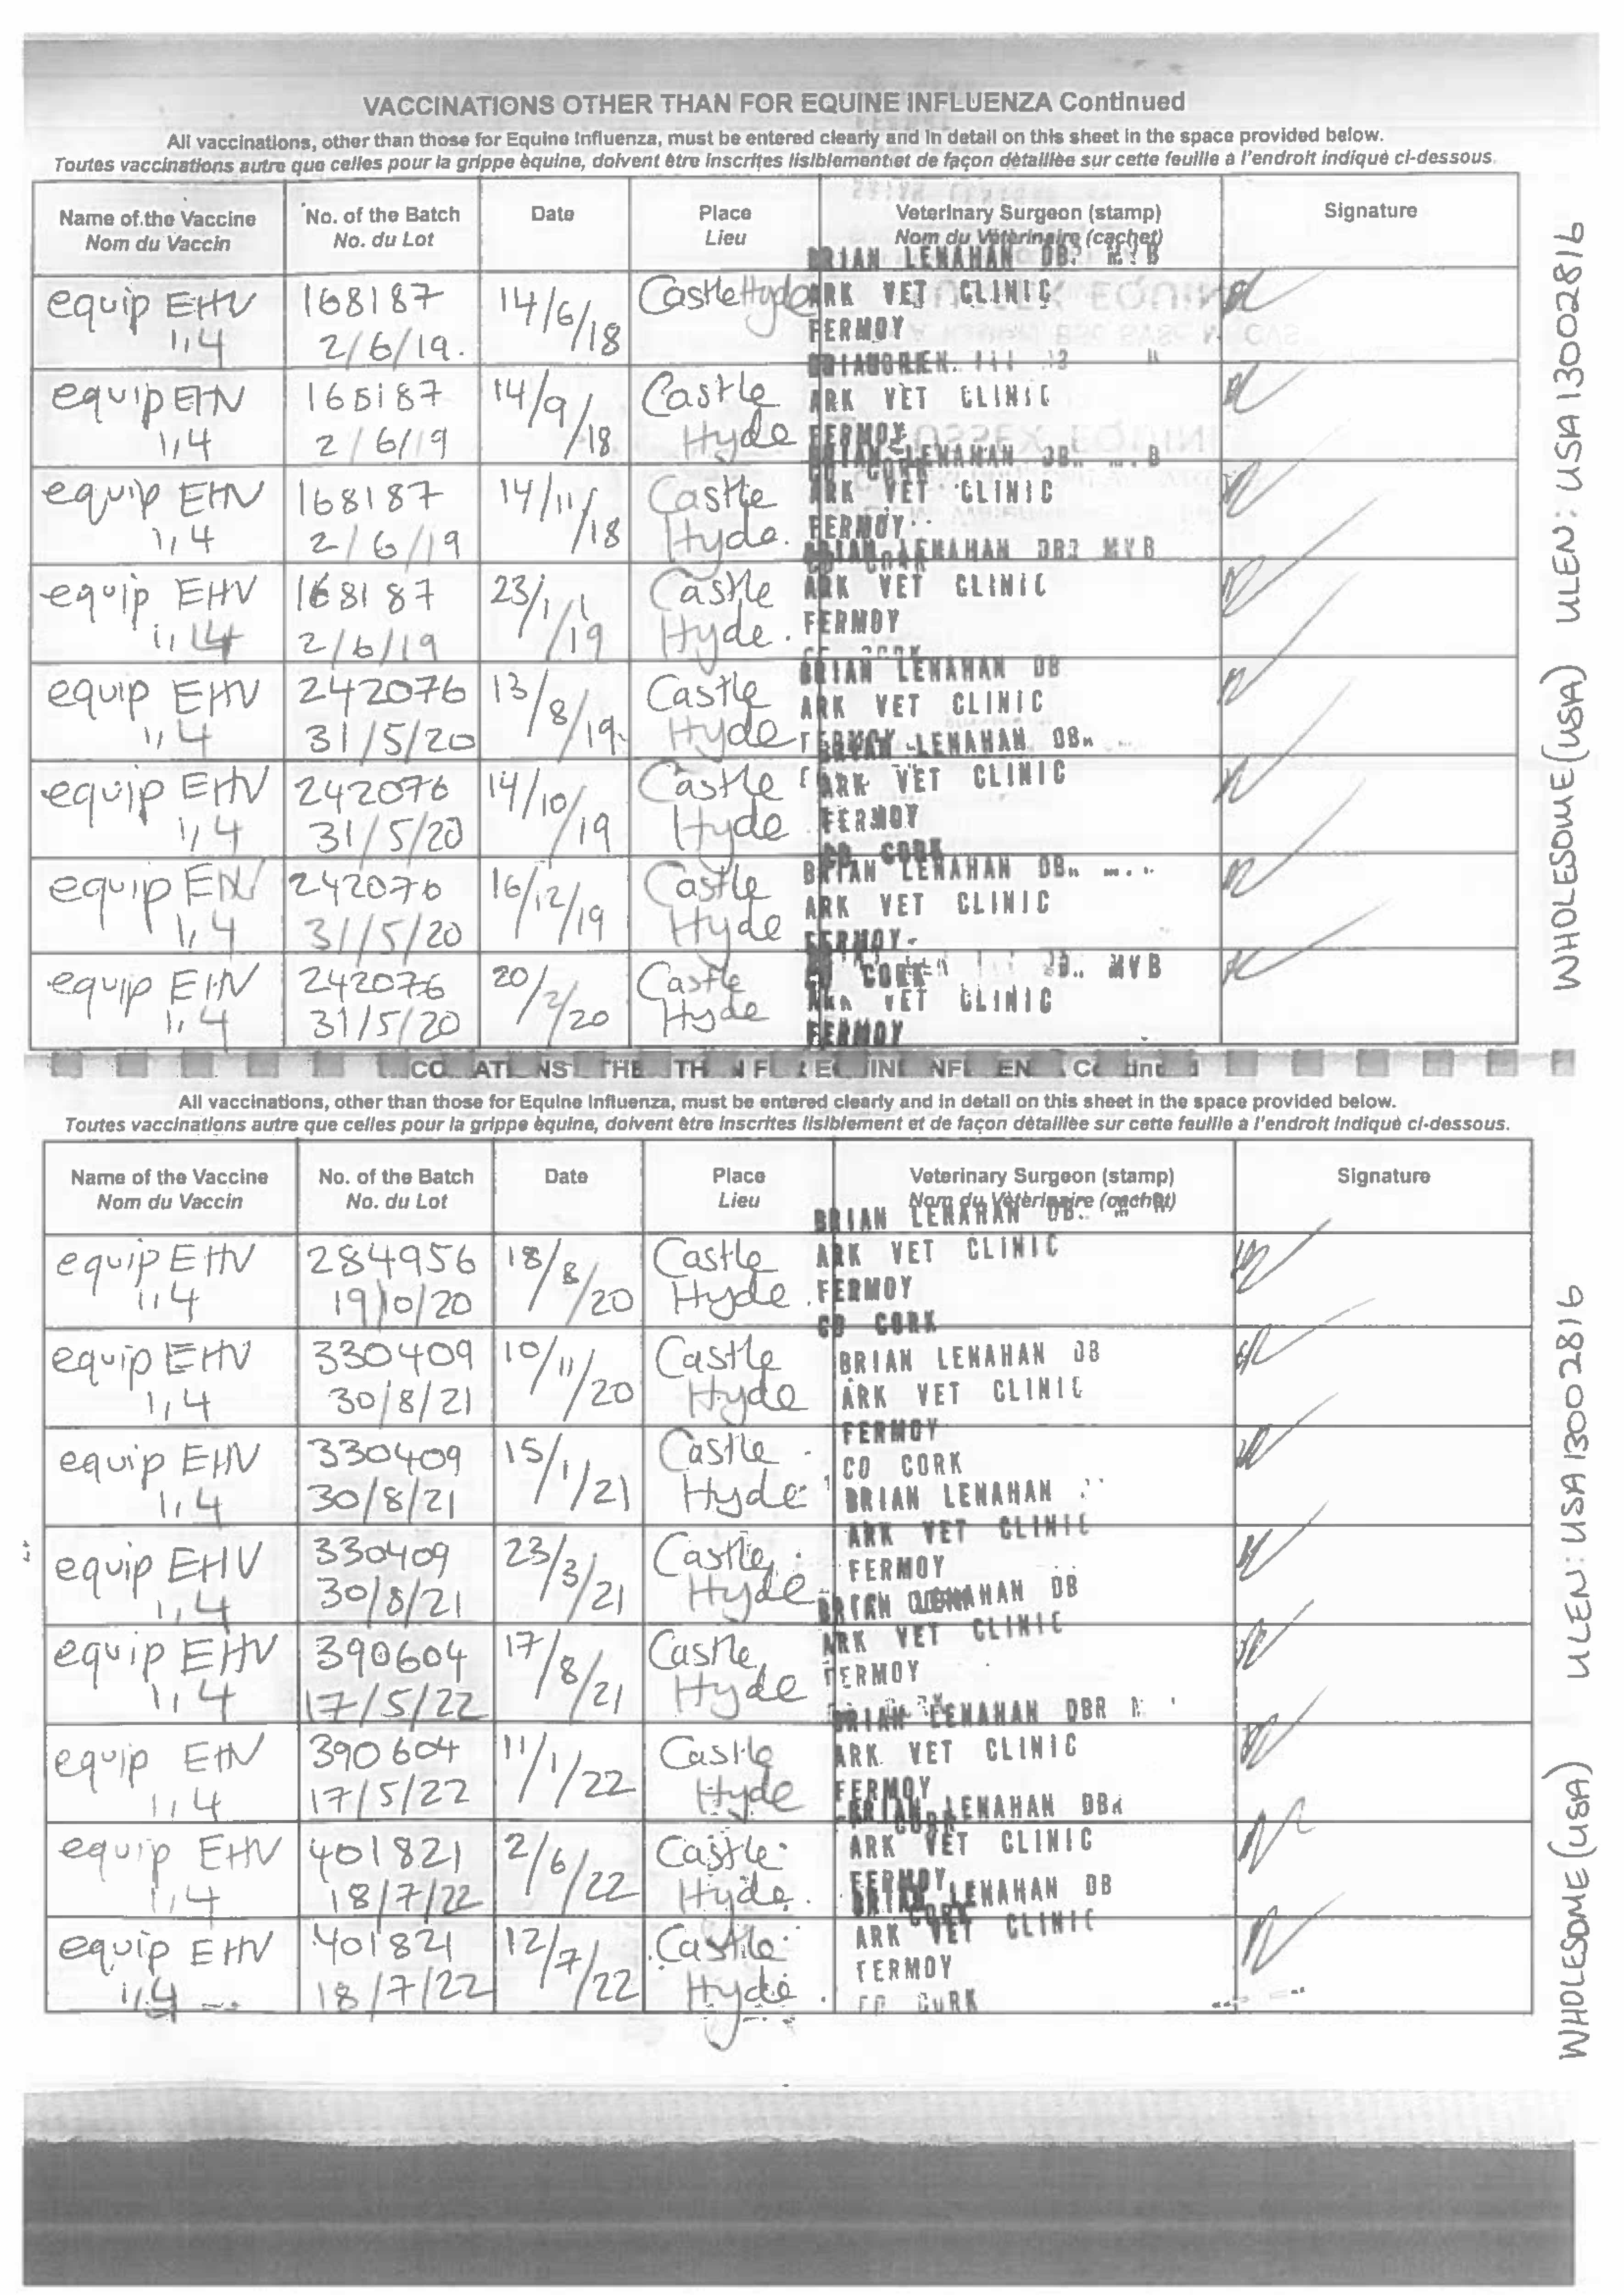 VACCINATIONS OTHER THAN FOR EQUINE INFLUENZA Continued
All vaccinations, other than those for Equine Influenza, must be entered clearly and in detail on this sheet in the space provided below.
Toutes vaccinations autre que celles pour la grippe èquine, doivent ètre inscrites lisiblement et de façon dètaillèe sur cette feuille à l'endroit indiquè ci-dessous.
Name of the Vaccine No. of the Batch Date Place Veterinary Surgeon (stamp) Signature
Nom du Vaccin No. du Lot Lieu Nom du Vètèrinaire (cachet)
BRIAN LENAHAN
equip EHV 168187 14/6/18 Castle Hyde ARK VET CLINIC
1,4 2/6/19. FERMOY
equip EHV 168187 14/9/18 Castle ARK VET CLINIC
1,4 2/6/19 Hyde FERMOY
BRIAN LENAHAN
equip EHV 168187 14/11/18 Castle ARK VET CLINIC
1,4 2/6/19 Hyde. FERMOY
BRIAN LENAHAN DBR MVB
equip EHV 168187 23/1/19 Castle ARK VET CLINIC
1,4 2/6/19 Hyde. FERMOY
BRIAN LENAHAN DB
equip EHV 242076 13/8/19. Castle ARK VET CLINIC
1,4 31/5/20 Hyde FERMOY
BRIAN LENAHAN
equip EHV 242076 14/10/19 Castle ARK VET CLINIC
1,4 31/5/20 Hyde FERMOY
CO CORK
BRIAN LENAHAN
equip EHV 242076 16/12/19 Castle ARK VET CLINIC
1,4 31/5/20 Hyde FERMOY
CO CORK MVB
equip EHV 242076 20/2/20 Castle ARK VET CLINIC
1,4 31/5/20 Hyde FERMOY
WHOLESOME (USA) ULEN: USA13002816
All vaccinations, other than those for Equine Influenza, must be entered clearly and in detail on this sheet in the space provided below.
Toutes vaccinations autre que celles pour la grippe èquine, doivent ètre inscrites lisiblement et de façon dètaillèe sur cette feuille à l'endroit indiquè ci-dessous.
Name of the Vaccine No. of the Batch Date Place Veterinary Surgeon (stamp) Signature
Nom du Vaccin No. du Lot Lieu Nom du Vètèrinaire (cachet)
BRIAN LENAHAN
equip EHV 284956 18/8/20 Castle ARK VET CLINIC
1,4 19/10/20 Hyde. FERMOY
CO CORK
equip EHV 330409 10/11/20 Castle BRIAN LENAHAN DB
1,4 30/8/21 Hyde ARK VET CLINIC
FERMOY
equip EHV 330409 15/1/21 Castle CO CORK
1,4 30/8/21 Hyde BRIAN LENAHAN
ARK VET CLINIC
equip EHV 330409 23/3/21 Castle FERMOY
1,4 30/8/21 Hyde BRIAN LENAHAN DB
equip EHV 390604 17/8/21 Castle ARK VET CLINIC
1,4 17/5/22 Hyde FERMOY
BRIAN LENAHAN DBR
equip EHV 390604 11/1/22 Castle ARK VET CLINIC
1,4 17/5/22 Hyde FERMOY
BRIAN LENAHAN DBR
equip EHV 401821 2/6/22 Castle ARK VET CLINIC
1,4 18/7/22 Hyde. FERMOY
BRIAN LENAHAN DB
equip EHV 401821 12/7/22 Castle ARK VET CLINIC
1,4 18/7/22 Hyde. FERMOY
CO CORK
WHOLESOME (USA) ULEN: USA13002816